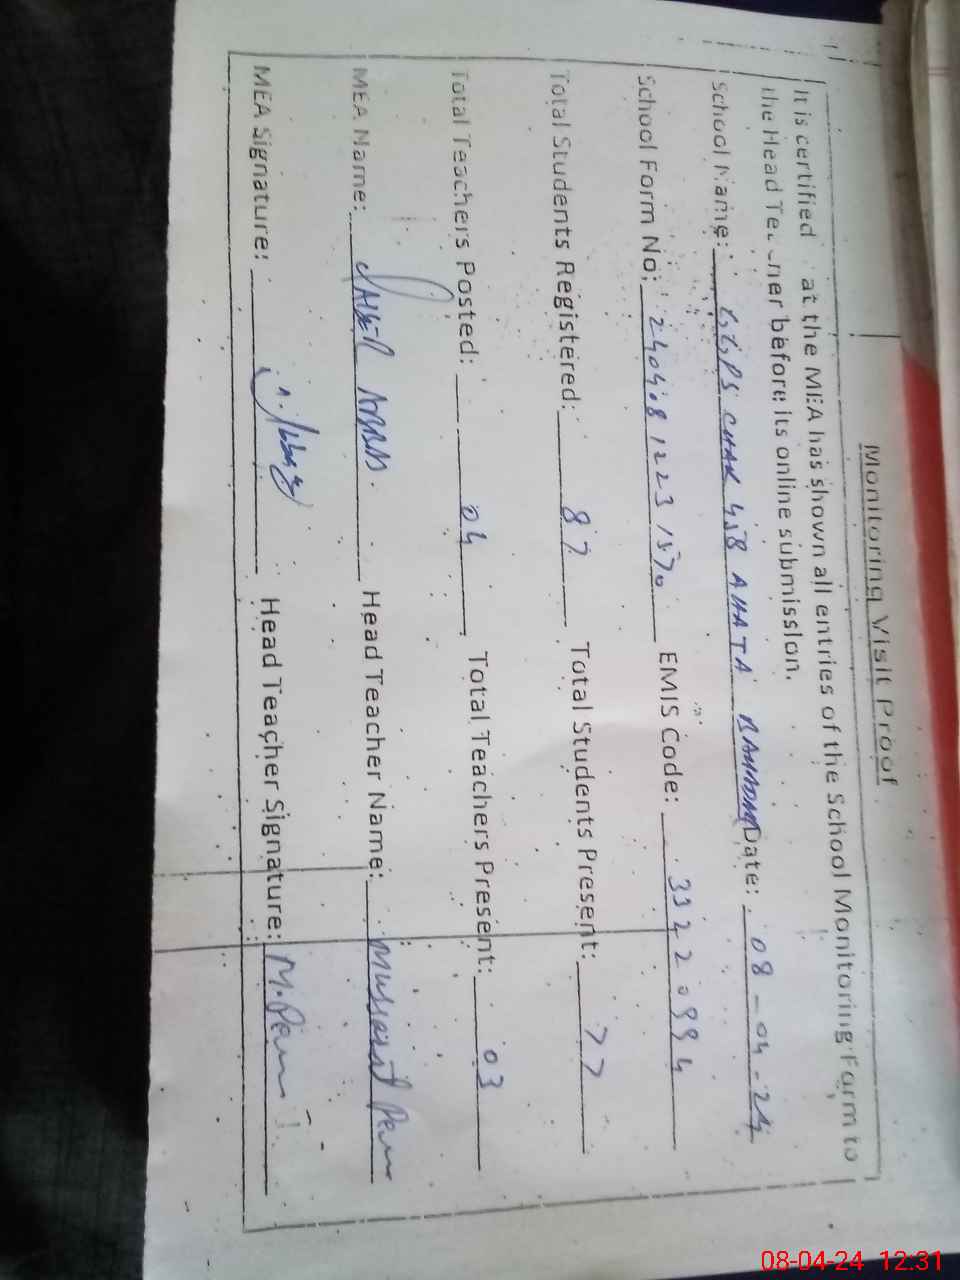 Monitoring Visit Proof
It is certified at the MEA has shown all entries of the School Monitoring Form to
the Head Teacher before its online submission.
School Name: GGPS CHAK 458 AHATA Date: 08-04-24
School Form No: 2404081223 1570 EMIS Code: 33220994
Total Students Registered: 87 Total Students Present: 77
Total Teachers Posted: 04 Total Teachers Present: 03
MEA Name: Head Teacher Name: Mussarat
MEA Signature: Head Teacher Signature: M.
08-04-24 12:31